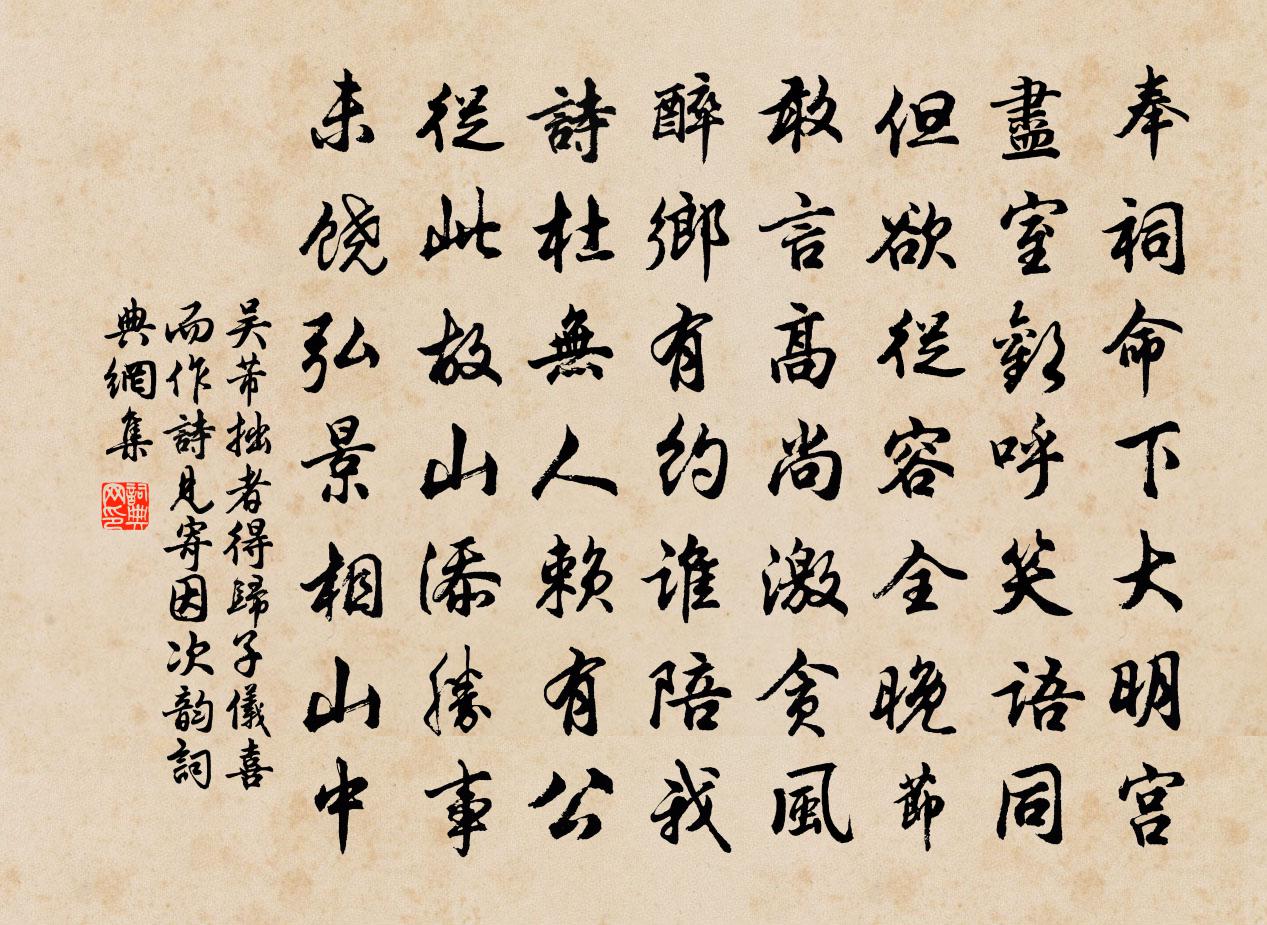 奉祠命下大明宫
盡室歡呼笑語同
但欲從容全晚節
敢言高尚激贪風
醉鄉有約谁陪我
詩社無人赖有公
從此故山添勝事
未饶弘景相山中
吴芾拙者得歸子儀喜
而作詩見寄因次韵詞
典網集
詞典网印